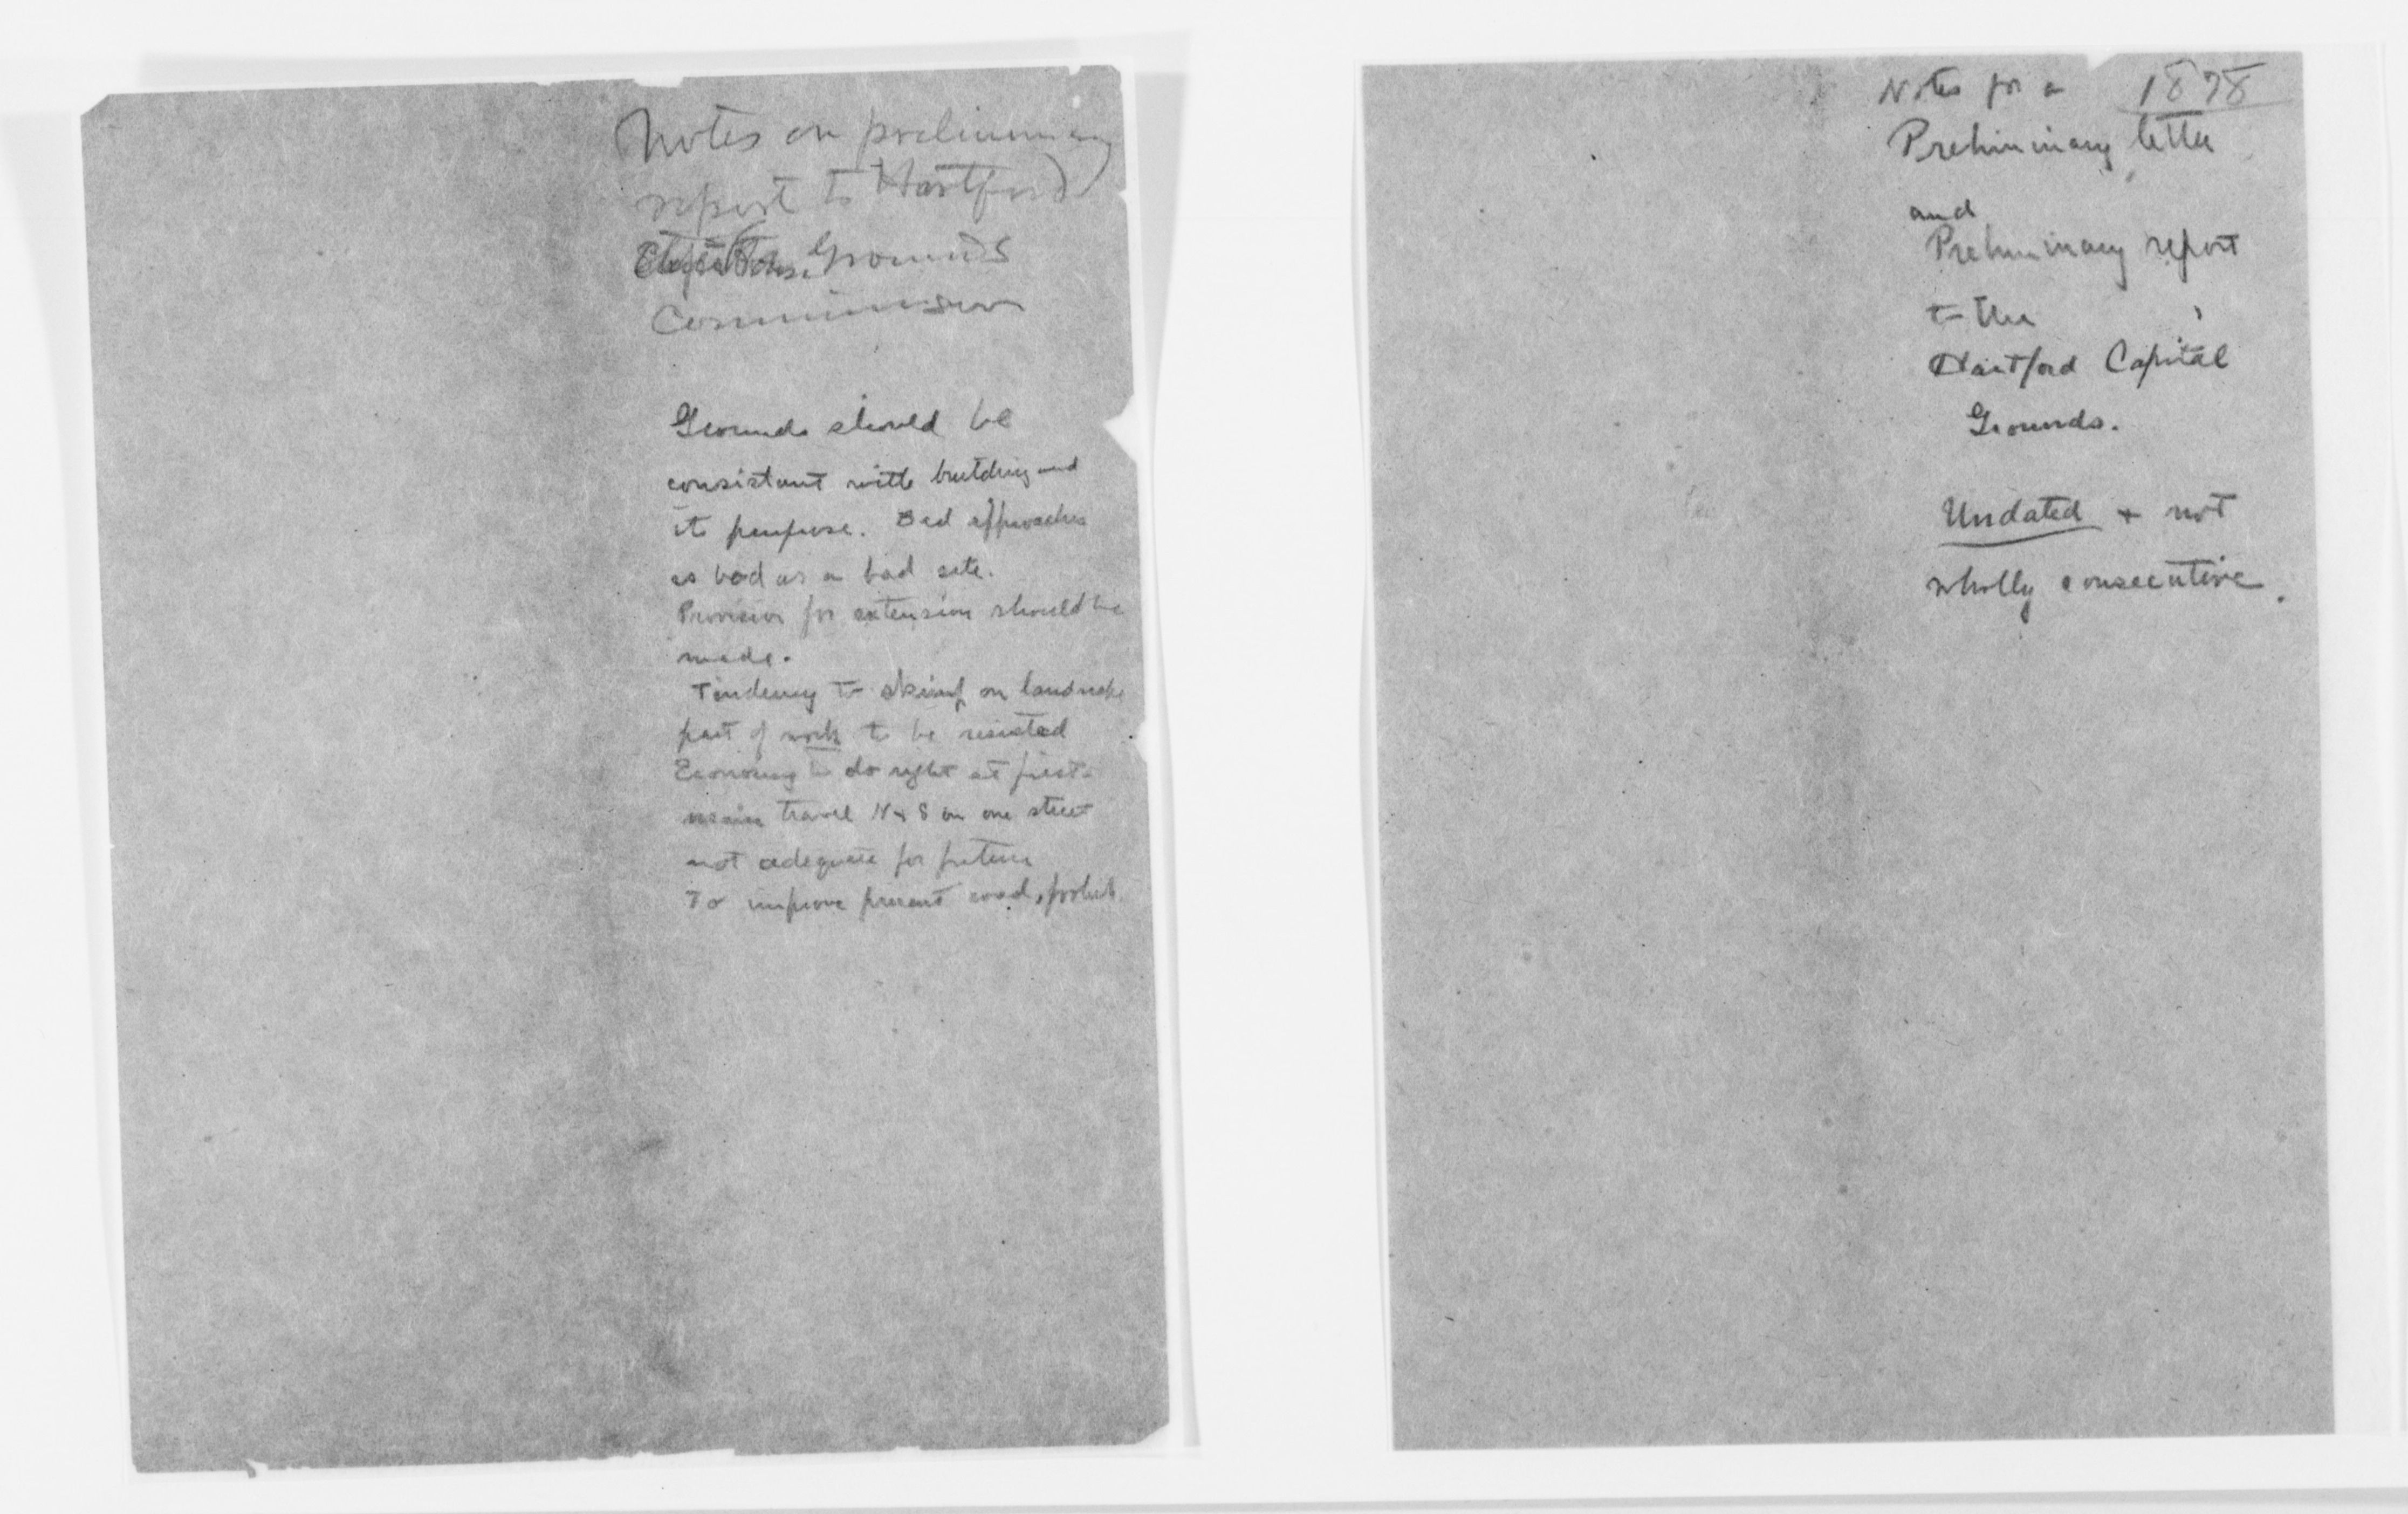 Notes on preliminary
report to Hartford
Grounds
Commission
Grounds should be
consistant with building and
its purpose. Bad approaches
as bad as a bad site.
Provision for extension should be
made.
Tendency to skimp on landscape
part of work to be resisted
Economy to do right at first.
main travel N & S on one street
not adequate for future
To improve present road,
Notes for a 1878
Preliminary letter
and
Preliminary report
to the
Hartford Capital
Grounds.
Undated + not
wholly consecutive.